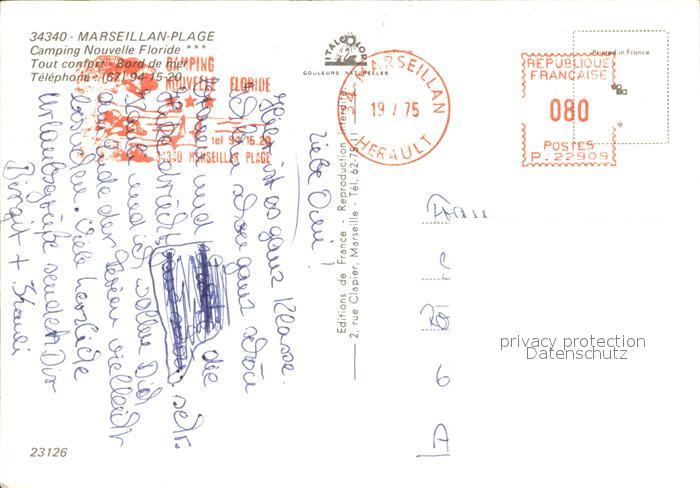 34340 - MARSEILLAN-PLAGE
Camping Nouvelle Floride ***
Tout confort - Bord de mer
Téléphone : (67) 94-15-20
CAMPING
NOUVELLE FLORIDE
tel 94.15.20
34340 MARSEILLAN PLAGE
ITALCOLOR
COULEURS NATURELLES
34-MARSEILLAN
19 7 75
HERAULT
REPUBLIQUE
FRANÇAISE
080
POSTES
P.22909
Printed in France
Editions de France - Reproduction interdite
2, rue Clapier, Marseille - Tél. 62-75-11
Liebe Omi!
Hier ist es ganz Klasse.
ganz schön
braun und die
sehr.
und ich wollen Dich
am Ende der Ferien vielleicht
besuchen. Viele herzliche
Urlaubsgrüße senden Dir
Birgit +
Frau
D 6
privacy protection
Datenschutz
23126